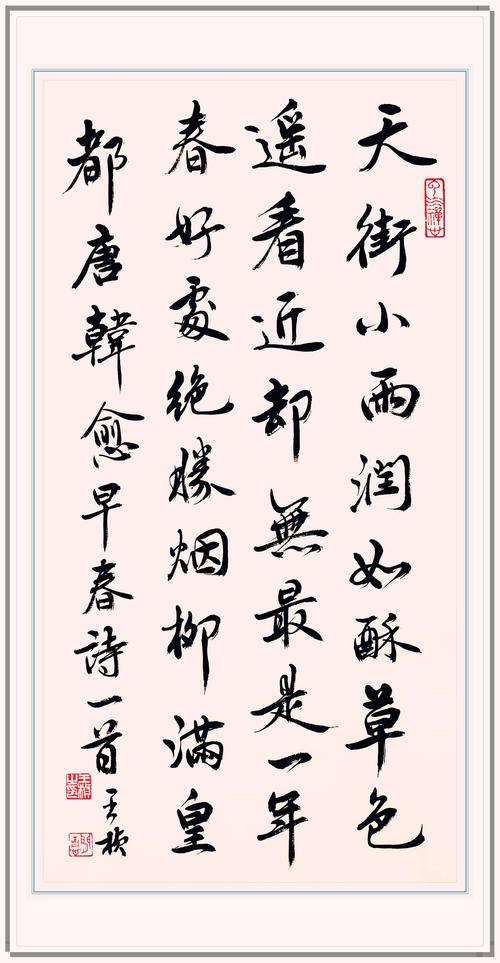 天街小雨润如酥草色
遥看近却無最是一年
春好處絶勝烟柳滿皇
都唐韓愈早春詩一首
王楨